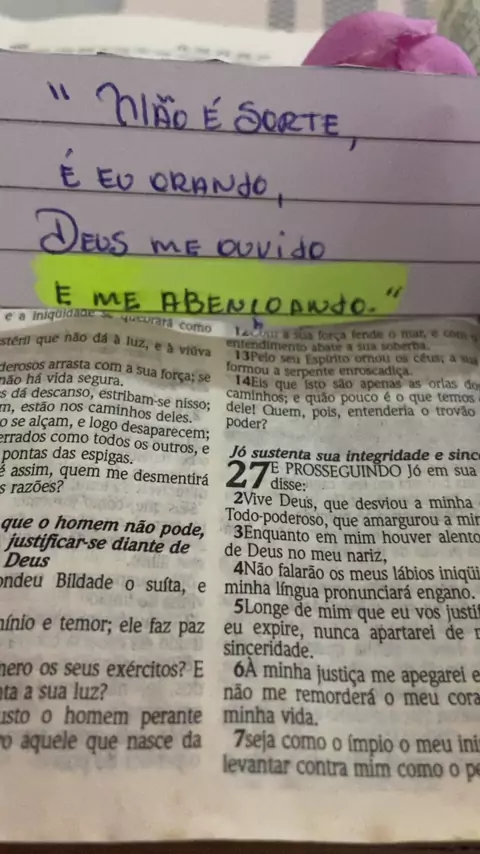 " NIÃO É SORTE,
É EU ORANDO,
DEUS ME OUVIDO
E ME ABENCOANDO."
e a iniqüidade se quebrará como
estéril que não dá à luz, e à viúva
derosos arrasta com a sua força; se
não há vida segura.
s dá descanso, estribam-se nisso;
m, estão nos caminhos deles.
o se alçam, e logo desaparecem;
errados como todos os outros, e
pontas das espigas.
é assim, quem me desmentirá
s razões?
que o homem não pode,
justificar-se diante de
Deus
ondeu Bildade o suíta, e
mínio e temor; ele faz paz
mero os seus exércitos? E
nta a sua luz?
usto o homem perante
ro aquele que nasce da
12Com a sua força fende o mar, e com
entendimento abate a sua soberba.
13Pelo seu Espírito ornou os céus; a sua
formou a serpente enroscadiça.
14Eis que isto são apenas as orlas dos
caminhos; e quão pouco é o que temos
dele! Quem, pois, entenderia o trovão
poder?
Jó sustenta sua integridade e since
27 E PROSSEGUINDO Jó em sua
disse:
2Vive Deus, que desviou a minha
Todo-poderoso, que amargurou a min
3Enquanto em mim houver alento
de Deus no meu nariz,
4Não falarão os meus lábios iniqüi
minha língua pronunciará engano.
5Longe de mim que eu vos justif
eu expire, nunca apartarei de m
sinceridade.
6À minha justiça me apegarei e
não me remorderá o meu cora
minha vida.
7seja como o ímpio o meu ini
levantar contra mim como o pe